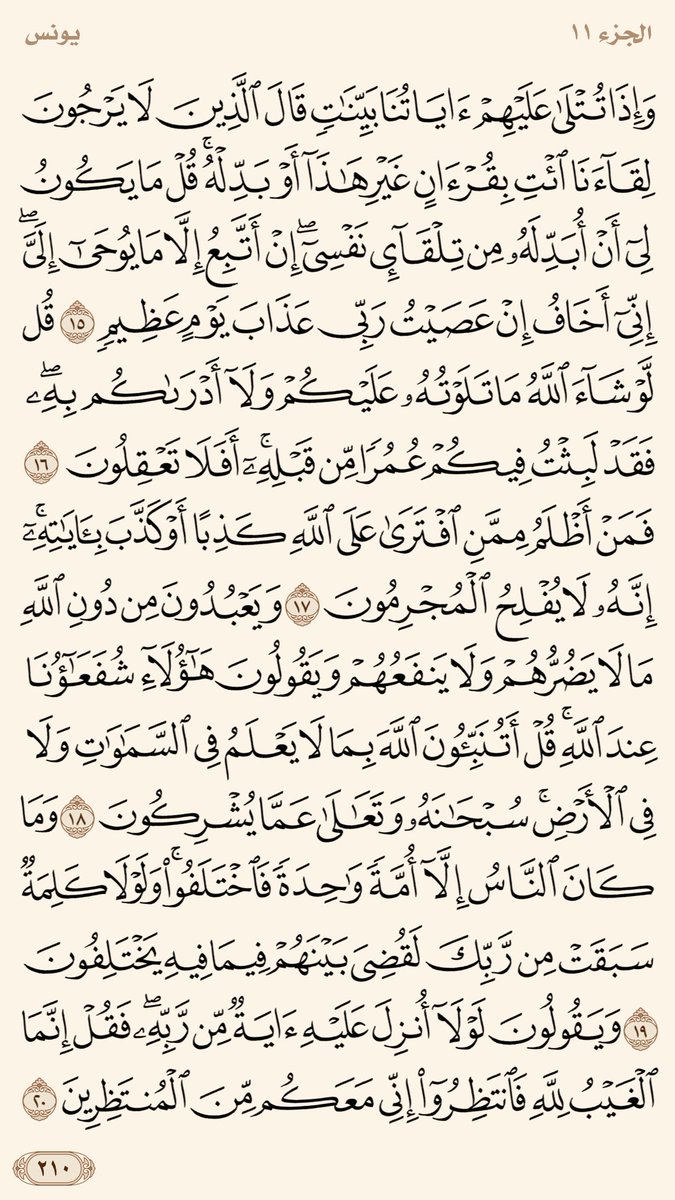 الجزء ١١
يونس
وَإِذَا تُتْلَىٰ عَلَيْهِمْ ءَايَاتُنَا بَيِّنَٰتٍ قَالَ ٱلَّذِينَ لَا يَرْجُونَ
لِقَآءَنَا ٱئْتِ بِقُرْءَانٍ غَيْرِ هَٰذَآ أَوْ بَدِّلْهُ ۚ قُلْ مَا يَكُونُ
لِىٓ أَنْ أُبَدِّلَهُۥ مِن تِلْقَآئِ نَفْسِىٓ ۖ إِنْ أَتَّبِعُ إِلَّا مَا يُوحَىٰٓ إِلَىَّ ۖ
إِنِّىٓ أَخَافُ إِنْ عَصَيْتُ رَبِّى عَذَابَ يَوْمٍ عَظِيمٍ ١٥ قُل
لَّوْ شَآءَ ٱللَّهُ مَا تَلَوْتُهُۥ عَلَيْكُمْ وَلَآ أَدْرَىٰكُم بِهِۦ ۖ
فَقَدْ لَبِثْتُ فِيكُمْ عُمُرًا مِّن قَبْلِهِۦٓ ۚ أَفَلَا تَعْقِلُونَ ١٦
فَمَنْ أَظْلَمُ مِمَّنِ ٱفْتَرَىٰ عَلَى ٱللَّهِ كَذِبًا أَوْ كَذَّبَ بِـَٔايَٰتِهِۦٓ ۚ
إِنَّهُۥ لَا يُفْلِحُ ٱلْمُجْرِمُونَ ١٧ وَيَعْبُدُونَ مِن دُونِ ٱللَّهِ
مَا لَا يَضُرُّهُمْ وَلَا يَنفَعُهُمْ وَيَقُولُونَ هَٰٓؤُلَآءِ شُفَعَٰٓؤُنَا
عِندَ ٱللَّهِ ۚ قُلْ أَتُنَبِّـُٔونَ ٱللَّهَ بِمَا لَا يَعْلَمُ فِى ٱلسَّمَٰوَٰتِ وَلَا
فِى ٱلْأَرْضِ ۚ سُبْحَٰنَهُۥ وَتَعَٰلَىٰ عَمَّا يُشْرِكُونَ ١٨ وَمَا
كَانَ ٱلنَّاسُ إِلَّآ أُمَّةً وَٰحِدَةً فَٱخْتَلَفُوا۟ ۚ وَلَوْلَا كَلِمَةٌ
سَبَقَتْ مِن رَّبِّكَ لَقُضِىَ بَيْنَهُمْ فِيمَا فِيهِ يَخْتَلِفُونَ
١٩ وَيَقُولُونَ لَوْلَآ أُنزِلَ عَلَيْهِ ءَايَةٌ مِّن رَّبِّهِۦ ۖ فَقُلْ إِنَّمَا
ٱلْغَيْبُ لِلَّهِ فَٱنتَظِرُوٓا۟ إِنِّى مَعَكُم مِّنَ ٱلْمُنتَظِرِينَ ٢٠
٢١٠